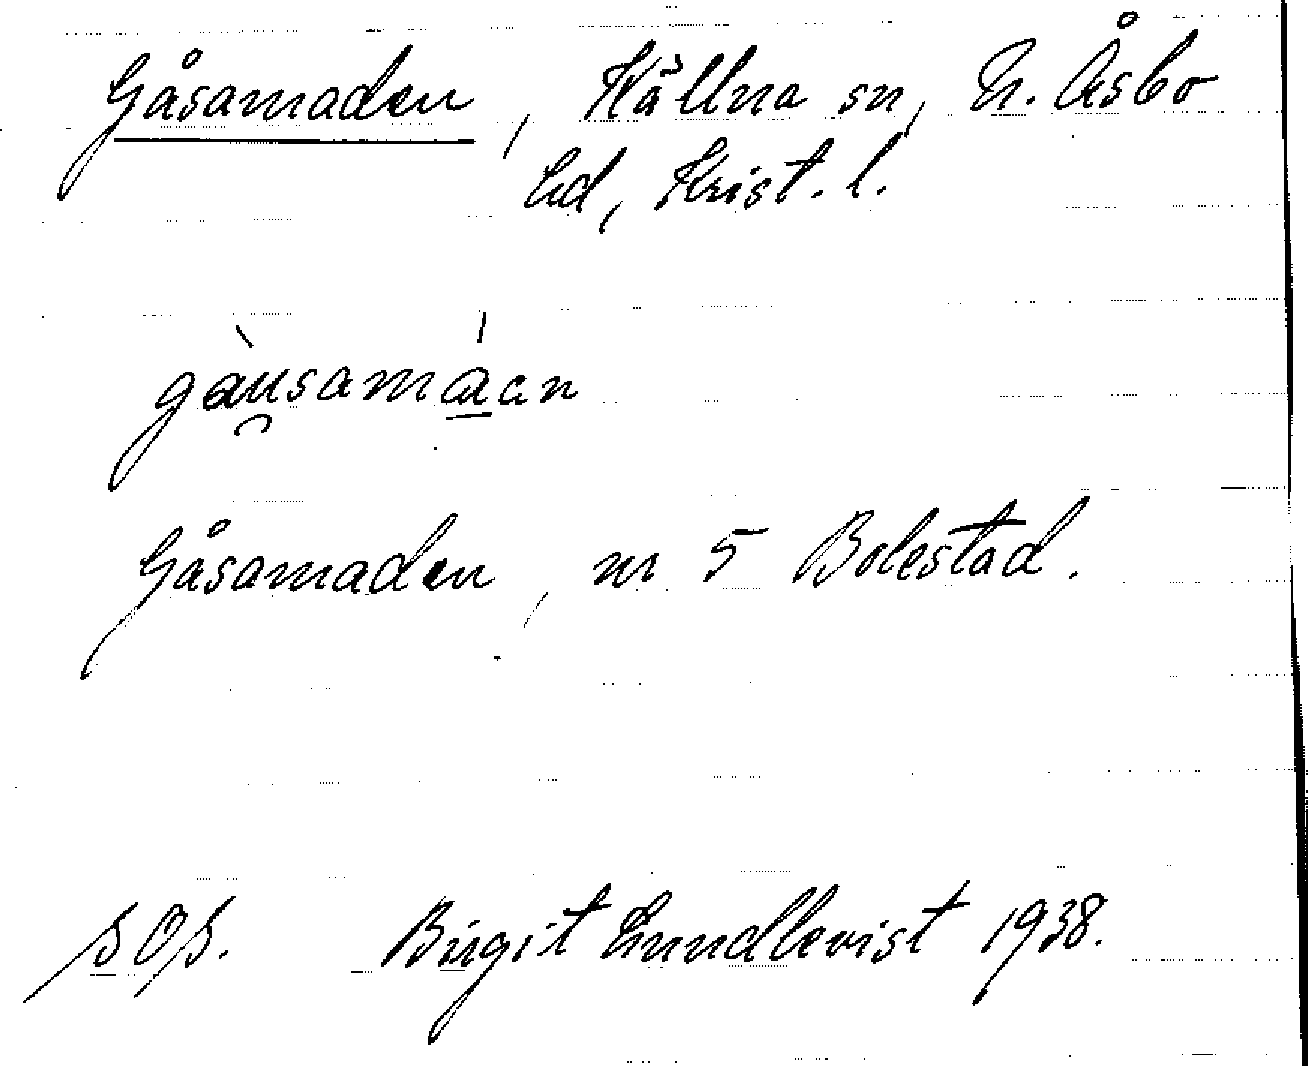 Gåsamaden, Källna sn, N. Åsbo
hd, Krist. l.
gàu̯samáan
Gåsamaden, nr 5 Bolestad.
SOS. Birgit Lundkvist 1938.